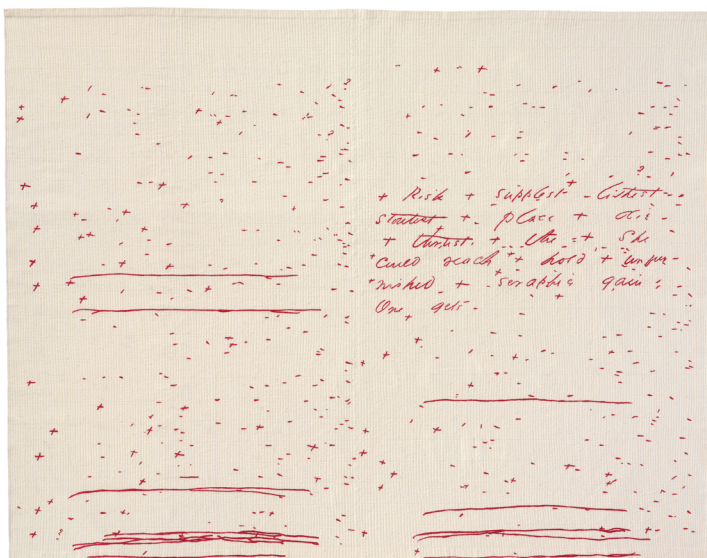 + Risk + supplest + lithest -
stoutest + place + dis -
+ thrust. + the + She
could reach + hold + unfur -
nished + seraphic gain -
One gets -